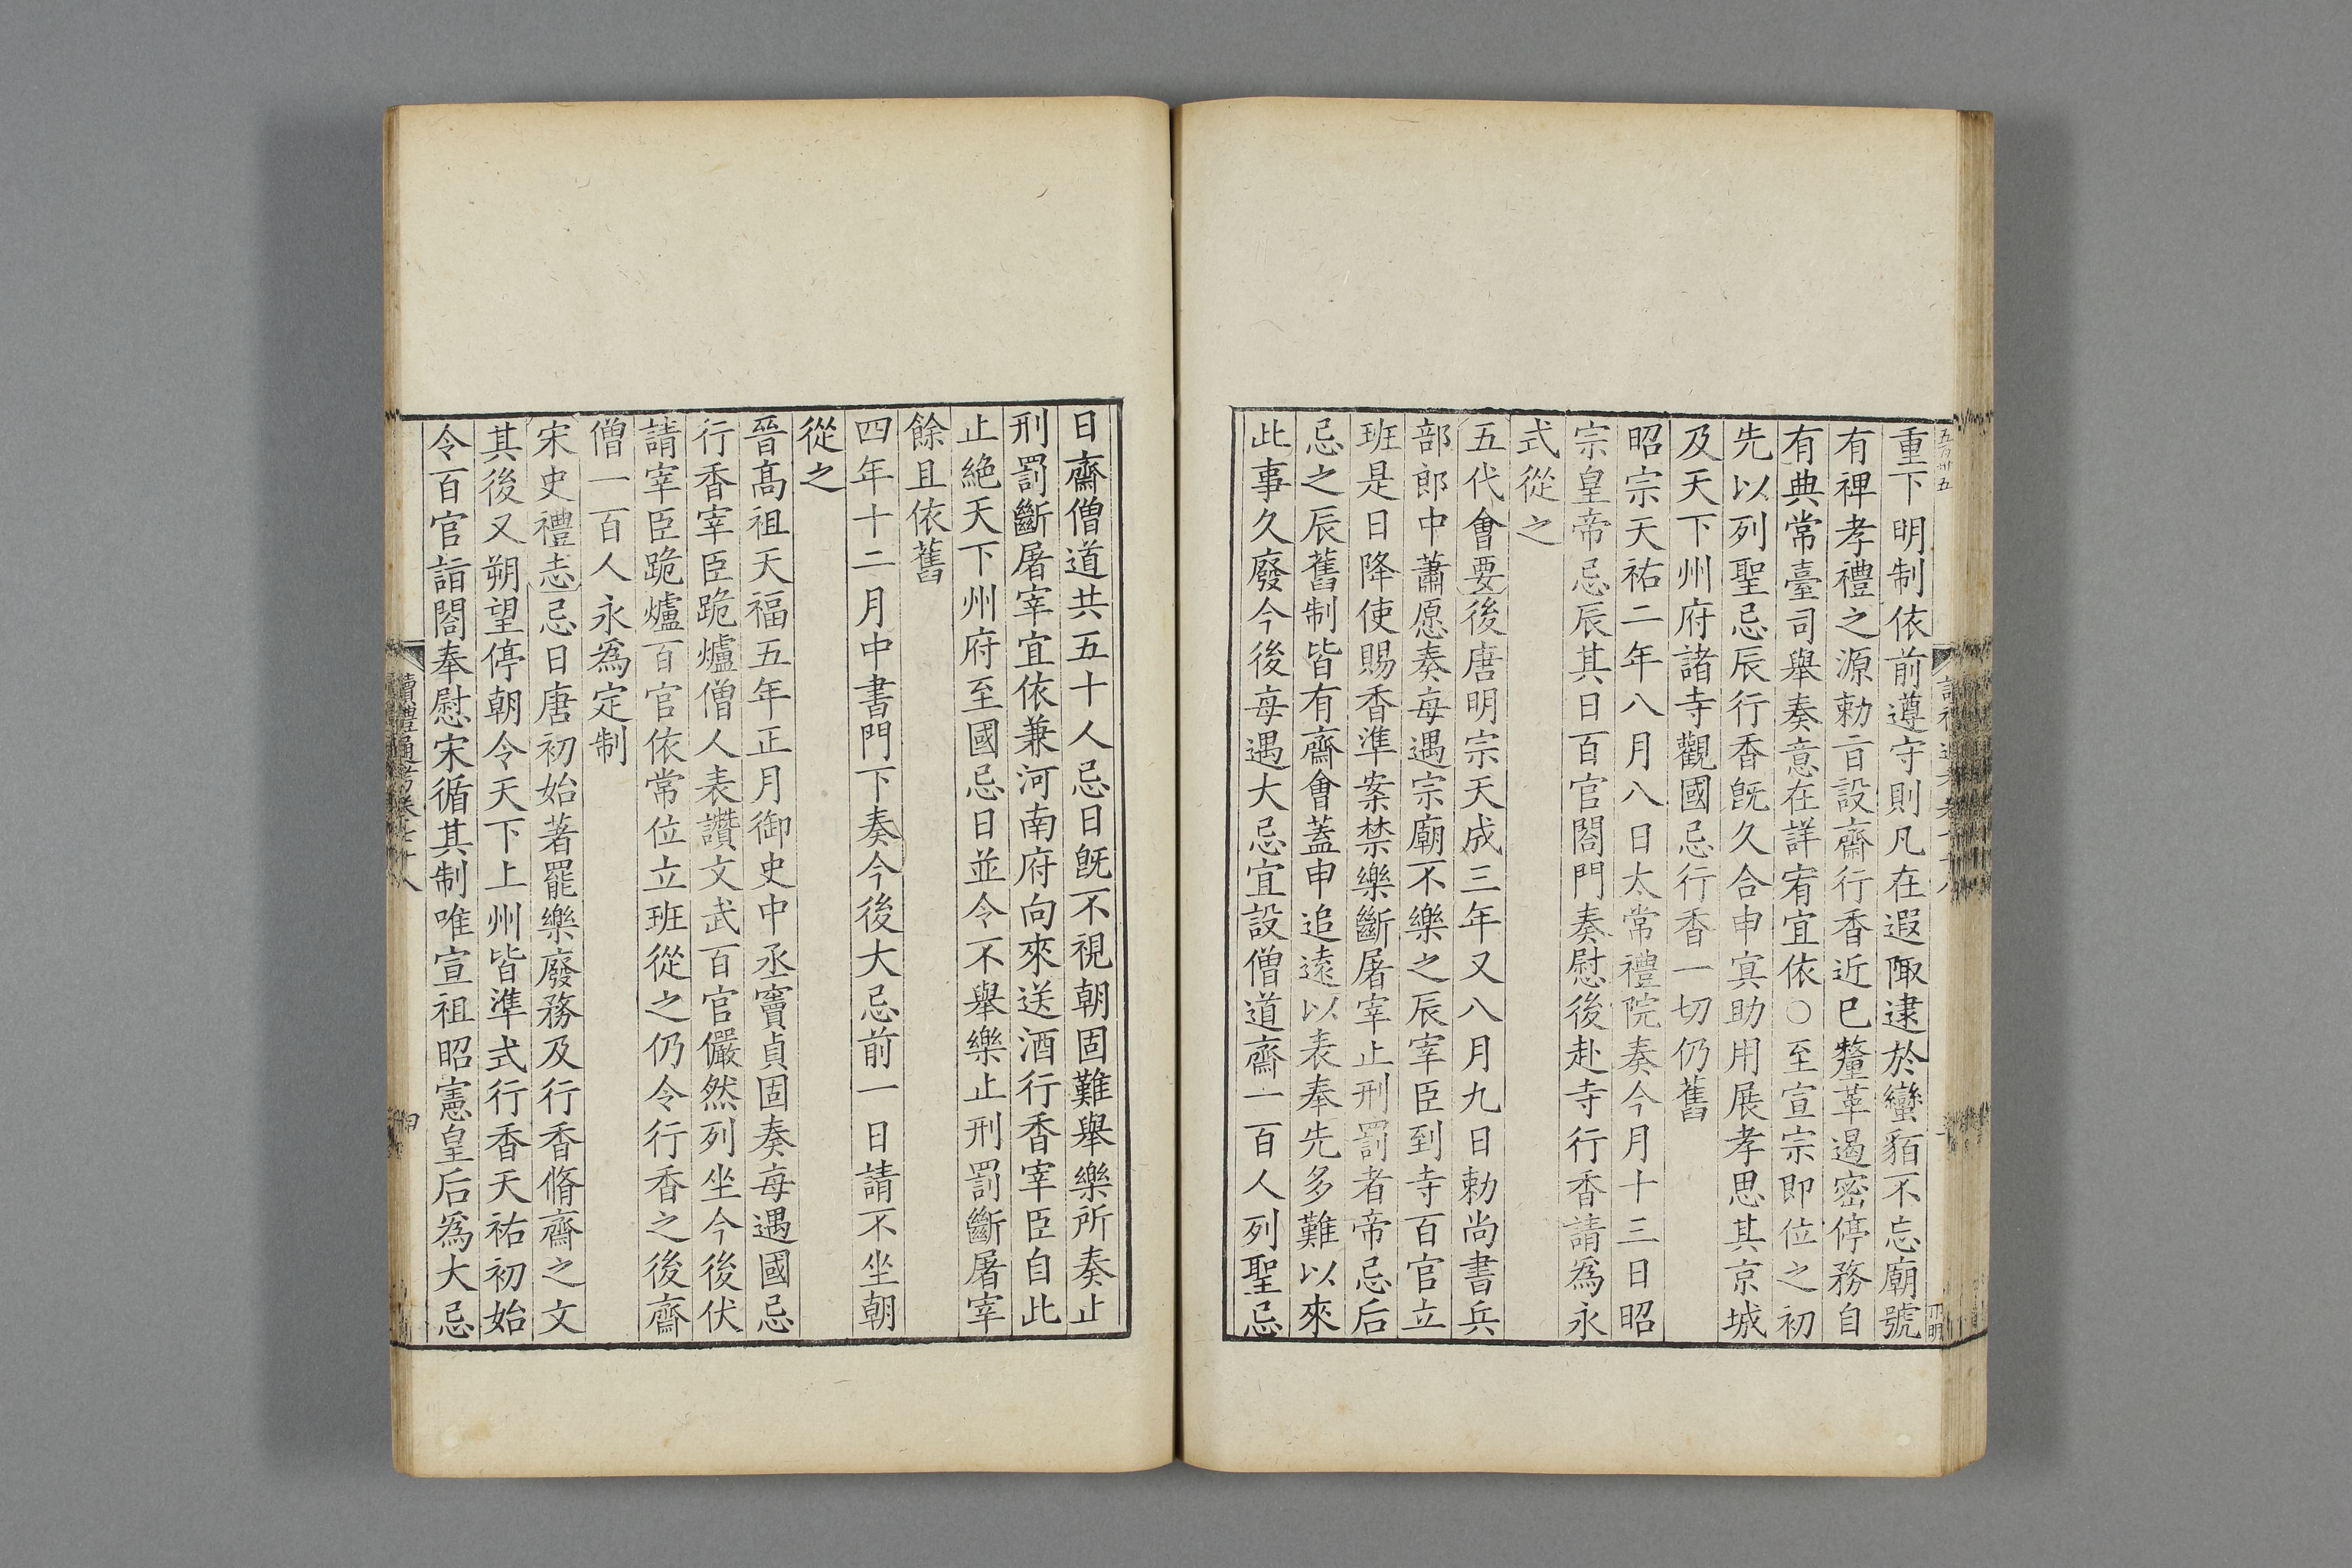 重下明制依前遵守則凡在遐陬逮於蠻貊不忘廟號
有裨孝禮之源勅㫖設齋行香近已釐革遏密停務自
有典常臺司舉奏意在詳宥宜依○至宣宗即位之初
先以列聖忌辰行香旣久合申㝠助用展孝思其京城
及天下州府諸寺觀國忌行香一切仍舊
昭宗天祐二年八月八日太常禮院奏今月十三日昭
宗皇帝忌辰其日百官閤門奏慰後赴寺行香請爲永
式從之
五代會要後唐明宗天成三年又八月九日勅尚書兵
部郎中蕭愿奏每遇宗廟不樂之辰宰臣到寺百官立
班是日降使賜香準案禁樂斷屠宰止刑罰者帝忌后
忌之辰舊制皆有齋會蓋申追遠以表奉先多難以來
此事久廢今後每遇大忌宜設僧道齋一百人列聖忌
日齋僧道共五十人忌日旣不視朝固難舉樂所奏止
刑罰斷屠宰宜依兼河南府向來送酒行香宰臣自此
止絶天下州府至國忌日並令不舉樂止刑罰斷屠宰
餘且依舊
四年十二月中書門下奏今後大忌前一日請不坐朝
從之
晉髙祖天福五年正月御史中丞竇貞固奏每遇國忌
行香宰臣跪爐僧人表讚文武百官儼然列坐今後伏
請宰臣跪爐百官依常位立班從之仍令行香之後齋
僧一百人永爲定制
宋史禮志忌日唐初始著罷樂廢務及行香脩齋之文
其後又朔望停朝令天下上州皆準式行香天祐初始
令百官詣閤奉慰宋循其制唯宣祖昭憲皇后爲大忌
讀禮通考卷七十八